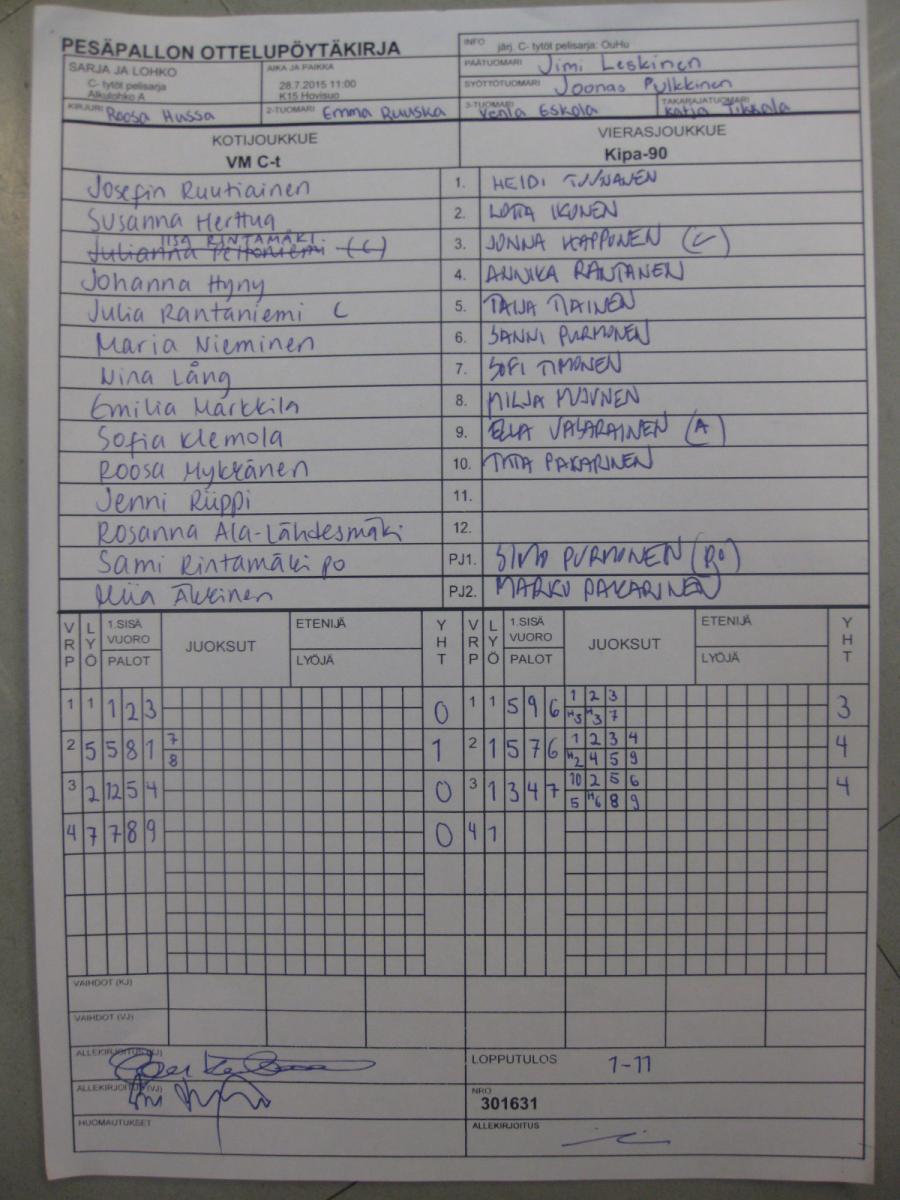 PESÄPALLON OTTELUPÖYTÄKIRJA
INFO järj. C- tytöt pelisarja: OuHu
SARJA JA LOHKO
C- tytöt pelisarja
Alkulohko A
AIKA JA PAIKKA
28.7.2015 11:00
K15 Hovisuo
PÄÄTUOMARI Jimi Leskinen
SYÖTTÖTUOMARI Joonas Pulkkinen
KIRJURI Roosa Hussa
2-TUOMARI Emma Ruuska
3-TUOMARI Venla Eskola
TAKARAJATUOMARI Katja Tikkala
KOTIJOUKKUE VIERASJOUKKUE
VM C-t Kipa-90
Josefin Ruutiainen 1. HEIDI
Susanna Herttua 2. LOTTA IKONEN
IISA RINTAMÄKI
Julianna Peltoniemi (C) 3. JONNA KAPPONEN (C)
Johanna Hyny 4. ANNIKA RANTANEN
Julia Rantaniemi C 5. TAIJA TIAINEN
Maria Nieminen 6. SANNI PURMONEN
Nina Lång 7. SOFI TIMONEN
Emilia Markkila 8. MILJA MUJUNEN
Sofia Klemola 9. ELLA VASARAINEN (A)
Roosa Mykkänen 10. PAKARINEN
Jenni Riippi 11.
Rosanna Ala-Lähdesmäki 12.
Sami Rintamäki po PJ1. SIMO PURMONEN (PO)
Miia Äkkinen PJ2. MARKU PAKARINEN
VRP LYÖ 1.SISÄ VUORO PALOT JUOKSUT ETENIJÄ LYÖJÄ YHT VRP LYÖ 1.SISÄ VUORO PALOT JUOKSUT ETENIJÄ LYÖJÄ YHT
1 1 1 2 3 0 1 1 5 9 6 1 2 3 3
H3 H3 7
2 5 5 8 1 7 1 2 1 5 7 6 1 2 3 4 4
8 H2 4 5 9
3 2 12 5 4 0 3 1 3 4 7 10 2 5 6 4
5 H6 8 9
4 7 7 8 9 0 4 1
VAIHDOT (KJ)
VAIHDOT (VJ)
ALLEKIRJOITUS (KJ)
LOPPUTULOS 1-11
ALLEKIRJOITUS (VJ)
NRO
301631
HUOMAUTUKSET
ALLEKIRJOITUS